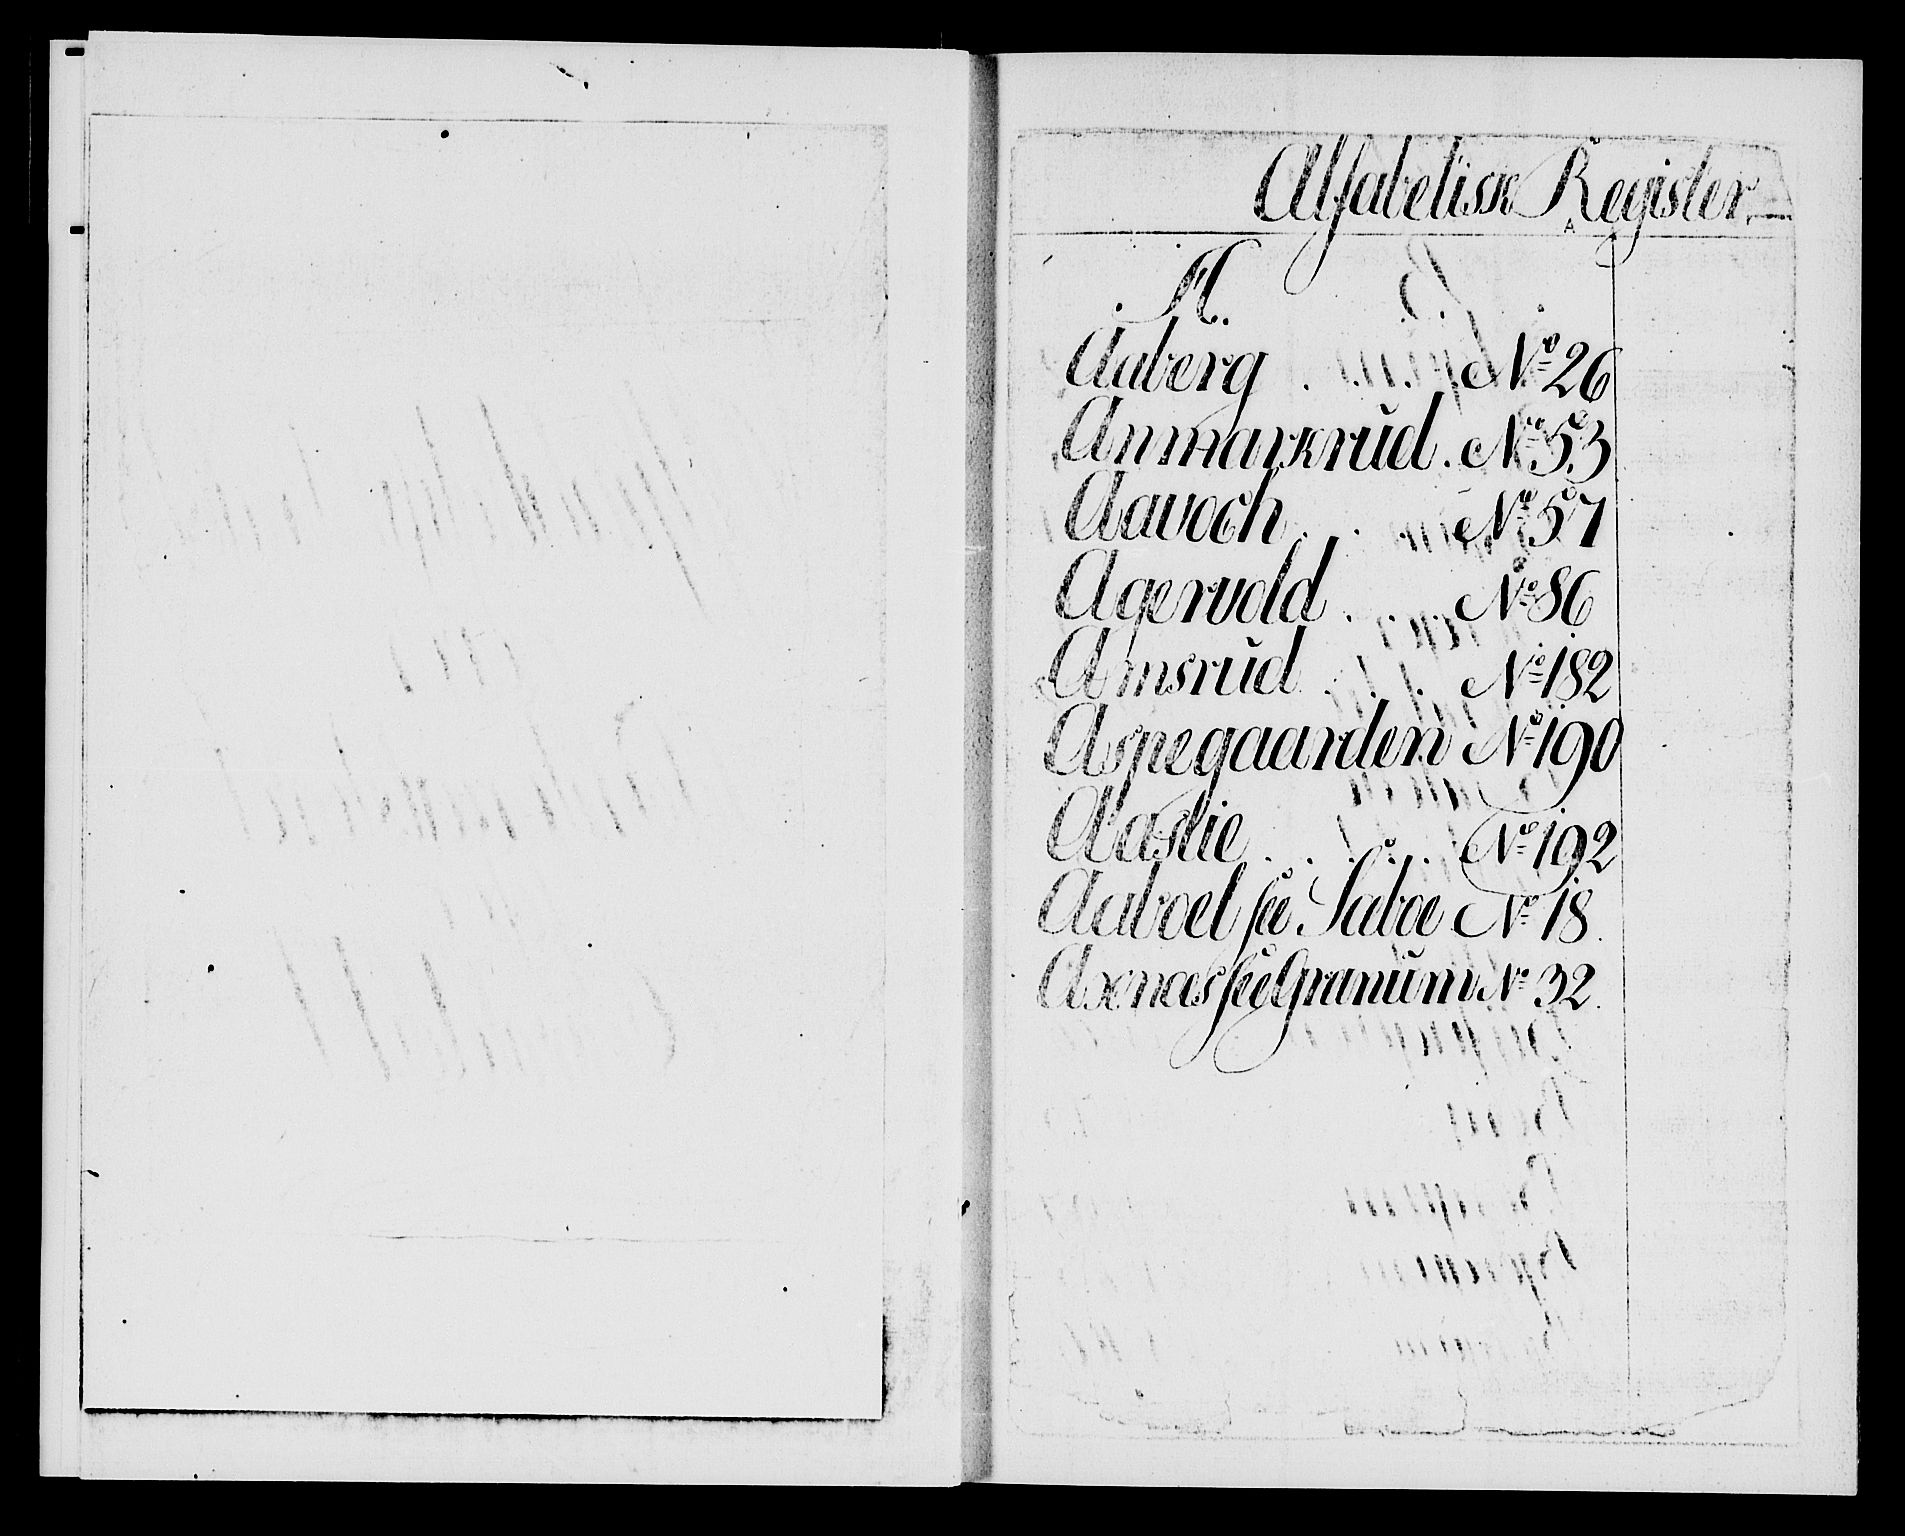 Alfabetisk Register
A
A.
Aaberg . . . . No 26
Anmarkrud . No 53
Aavoch . . . No 57
Agervold . . . No 86
Amsrud . . . No 182
Aspegaarden No 190
Aaslie . . . . . No 192
Aaboel see Saboe No 18.
Axnæs see Granum No 32.